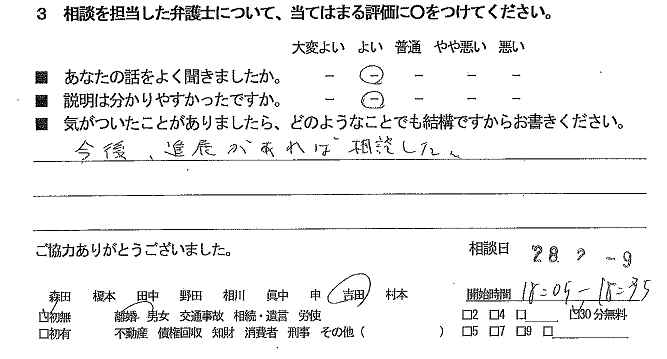 3 相談を担当した弁護士について、当てはまる評価に〇をつけてください。
大変よい よい 普通 やや悪い 悪い
■ あなたの話をよく聞きましたか。 － － － － －
■ 説明は分かりやすかったですか。 － － － － －
■ 気がついたことがありましたら、どのようなことでも結構ですからお書きください。
今後、進展があれば相談したい
ご協力ありがとうございました。 相談日 28 2 -9
森田 榎本 田中 野田 相川 眞中 申 吉田 村本 開始時間 18:05-18:35
□初無 離婚 男女 交通事故 相続・遺言 労使 □2 □4 □ □30分無料
□初有 不動産 債権回収 知財 消費者 刑事 その他( ) □5 □7 □9 □